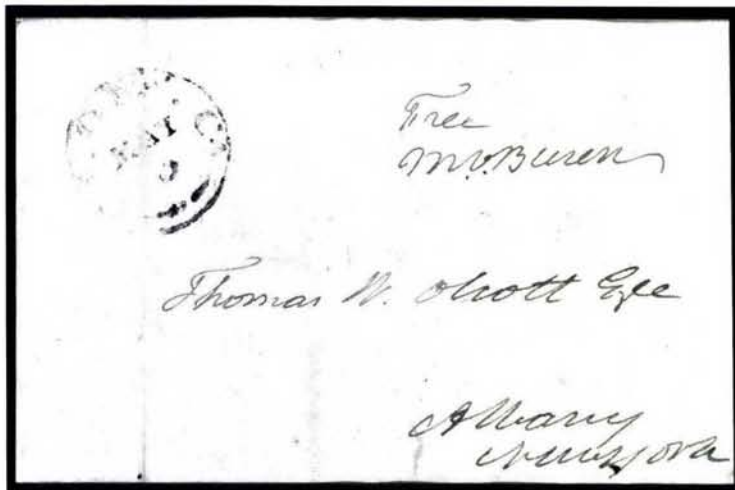 MAY
Free
M.V.Buren
Thomas W. Olcott Esqe
Albany
New York